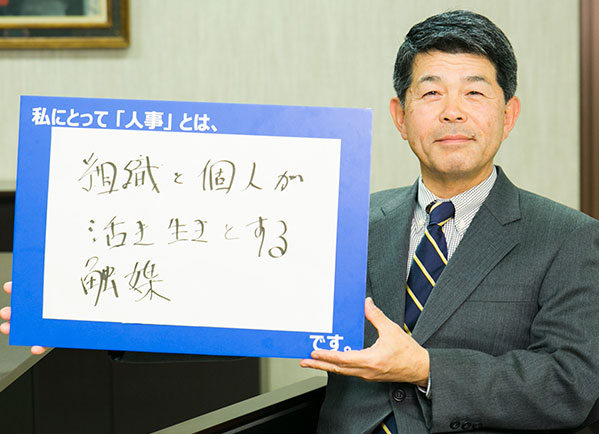 私にとって「人事」とは、
組織と個人が
活き生きとする
触媒
です。